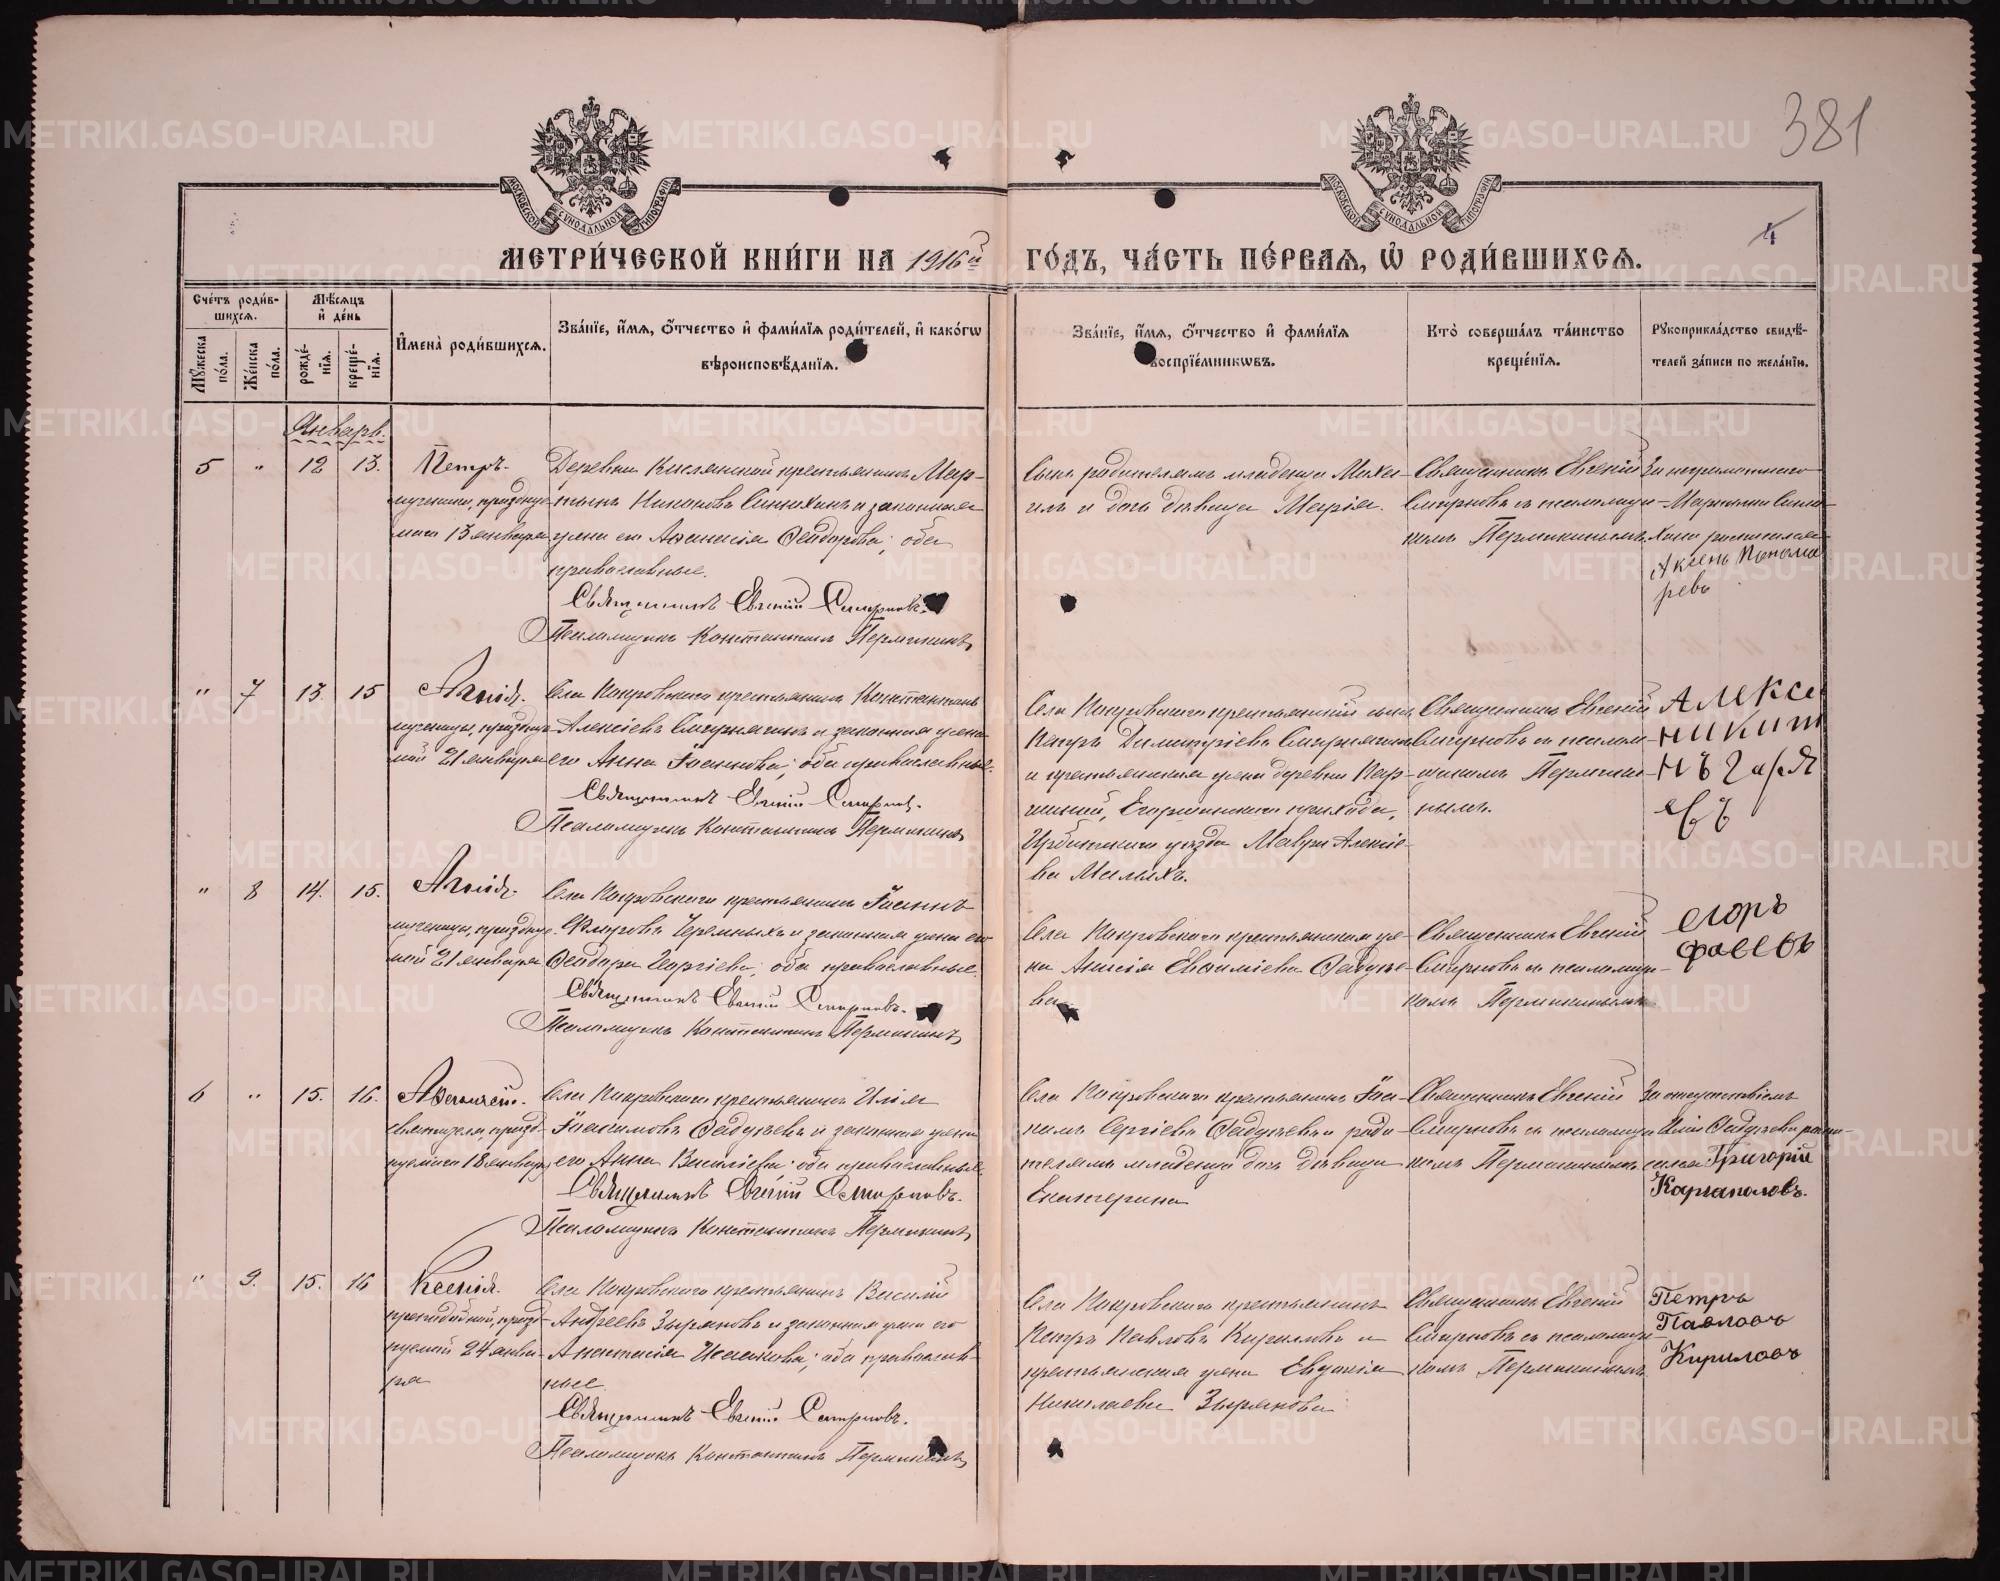 381
4
МОСКОВСКОЙ СѴНОДАЛЬНОЙ ТИПОГРАФІИ
МОСКОВСКОЙ СѴНОДАЛЬНОЙ ТИПОГРАФІИ
МЕТРИ́ЧЕСКОЙ КНИ́ГИ НА 1916й ГО́ДЪ, ЧА́СТЬ ПЕ́РВАЯ, Ѡ҆ РОДИ́ВШИХСЯ.
Сче́тъ роди́в-
шихся.
Мѣ́сяцъ
и҆ де́нь
Мꙋ́жеска по́ла.
Же́нска по́ла.
рожде́-
нїя.
креще́-
нїя.
И҆мена̀ роди́вшихся.
Зва́нїе, и҆́мя, ѻ҆́тчество и҆ фами́лїя роди́телей, и҆ како́гѡ
вѣроисповѣ́данїя.
Зва́нїе, и҆́мя, ѻ҆́тчество и҆ фами́лїя
воспрїе́мникѡвъ.
Кто̀ соверша́лъ та́инство
креще́нїя.
Рꙋкоприкла́дство свидѣ́-
телей за́писи по жела́нїю.
Январь.
5 " 12 13.
Петръ.
мученика, праздуе-
маго 13 января
Деревни Кислянской крестьянинъ Мар-
тынъ Никоновъ Синихинъ и законная
жена его Агнисія Ѳеодорова; оба
православные.
Священникъ Евгеній Смирновъ.
Псаломщикъ Константинъ Пермикинъ
Сынъ родителямъ младенца Миха-
илъ и дочь дѣвица Марія.
Священникъ Евгеній
Смирновъ съ псаломщи-
комъ Пермикинымъ
За неграмотнаго
Мартына Сини-
хина росписался
Аксенъ Понома
ревъ
" 7 13 15
Агнія.
мученицы, праздуе-
мой 21 января
Села Покровскаго крестьянинъ Константинъ
Алексіевъ Смирнягинъ и законная жена
его Анна Іоаннова; оба православные.
Священникъ Евгеній Смирновъ.
Псаломщикъ Константинъ Пермикинъ
Села Покровскаго крестьянскій сынъ
Петръ Димитріевъ Смирнягинъ
и крестьянская жена деревни Пар-
шиной, Егоршинскаго прихода,
Ирбитскаго уѣзда Мавра Алексіе-
ва Малыхъ.
Священникъ Евгеній
Смирновъ съ псалом-
щикомъ Пермики-
нымъ.
АЛЕКСе
НИКИТ
" 8 14. 15.
Агнія.
мученицы, праздуе-
мой 21 января
Села Покровскаго крестьянинъ Іоаннъ
Флоровъ Черемныхъ и законная жена его
Ѳеодора Георгіева; оба православные.
Священникъ Евгеній Смирновъ.
Псаломщикъ Константинъ Пермикинъ
Села Покровскаго крестьянская же-
на Анисія Евѳиміева Ѳедосѣе-
ва
Священникъ Евгеній
Смирновъ съ псаломщи-
комъ Пермикинымъ
егоръ
6 " 15. 16.
Аѳанасій.
святителя, празд-
нуемаго 18 января
Села Покровскаго крестьянинъ Илія
Іоакимовъ Ѳедосѣевъ и законная жена
его Анна Василіева; оба православные.
Священникъ Евгеній Смирновъ.
Псаломщикъ Константинъ Пермикинъ
Села Покровскаго крестьянинъ Іоа-
кимъ Сергіевъ Ѳедосѣевъ и роди-
телямъ младенца дочь дѣвица
Екатерина
Священникъ Евгеній
Смирновъ съ псаломщи-
комъ Пермикинымъ
За отсутствіемъ
Иліи Ѳедосѣева распи-
сался Григорій
Каргаполовъ.
" 9. 15. 16
Ксенія.
преподобной, празд-
нуемой 24 янва-
ря
Села Покровскаго крестьянинъ Василій
Андреевъ Зыряновъ и законная жена его
Анастасія Исаакова; оба православ-
ные.
Священникъ Евгеній Смирновъ.
Псаломщикъ Константинъ Пермикинъ
Села Покровскаго крестьянинъ
Петръ Павловъ Кириловъ и
крестьянская жена Евдокія
Николаева Зырянова
Священникъ Евгеній
Смирновъ съ псаломщи-
комъ Пермикинымъ.
Петръ
Павловъ
Кириловъ
METRIKI.GASO-URAL.RU